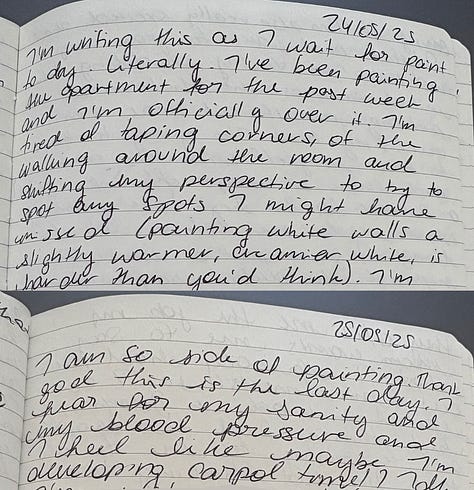 24/05/25
I'm writing this as I wait for paint
to dry. Literally. I've been painting
the apartment for the past week
and I'm officially over it. I'm
tired of taping corners, of the
walking around the room and
shifting my perspective to try to
spot any spots I might have
missed (painting white walls a
slightly warmer, creamier white, is
harder than you'd think). I'm
25/05/25
I am so sick of painting. Thank
god this is the last day. I
fear for my sanity and
my blood pressure and
I feel like maybe I'm
developing carpol tunnel? I